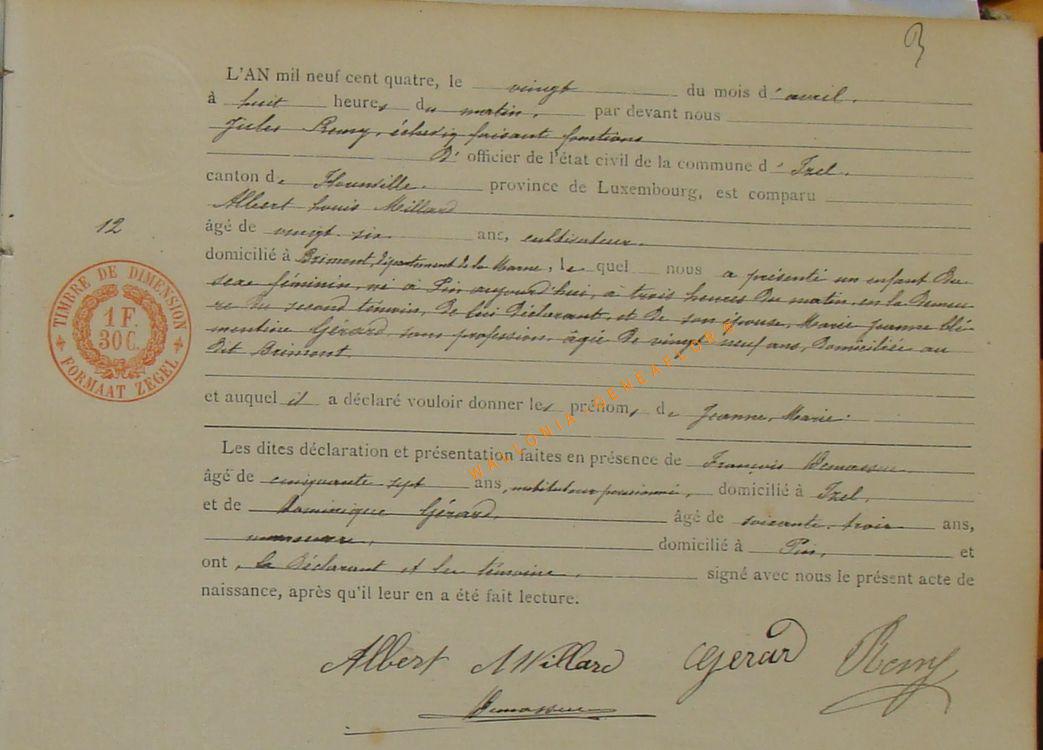 L'AN mil neuf cent quatre, le vingt du mois d' avril,
à huit heures du matin, par devant nous
Jules Remy, échevin faisant fonctions
d' officier de l'état civil de la commune d' Izel,
canton de Florenville, province de Luxembourg, est comparu
Albert Louis Millard
âgé de vingt six ans, cultivateur,
domicilié à Brimont, département de la Marne, lequel nous a présenté un enfant du
sexe féminin, né à Pin aujourd'hui, à trois heures du matin, en la demeu-
re du second témoin, de lui déclarant, et de son épouse, Marie Jeanne Clé-
mentine Gérard, sans profession, âgée de vingt neuf ans, domiciliée au
dit Brimont,
et auquel il a déclaré vouloir donner les prénoms de Jeanne, Marie.
Les dites déclaration et présentation faites en présence de François
âgé de cinquante sept ans, instituteur pensionné, domicilié à Izel,
et de Dominique Gérard, âgé de soixante-trois ans,
domicilié à Pin, et
ont, le déclarant et les témoins, signé avec nous le présent acte de
naissance, après qu'il leur en a été fait lecture.
Albert Millard Gerard Remy
12
TIMBRE DE DIMENSION
1 F.
30 C.
FORMAAT ZEGEL
WALLONIA GENEAFLORE